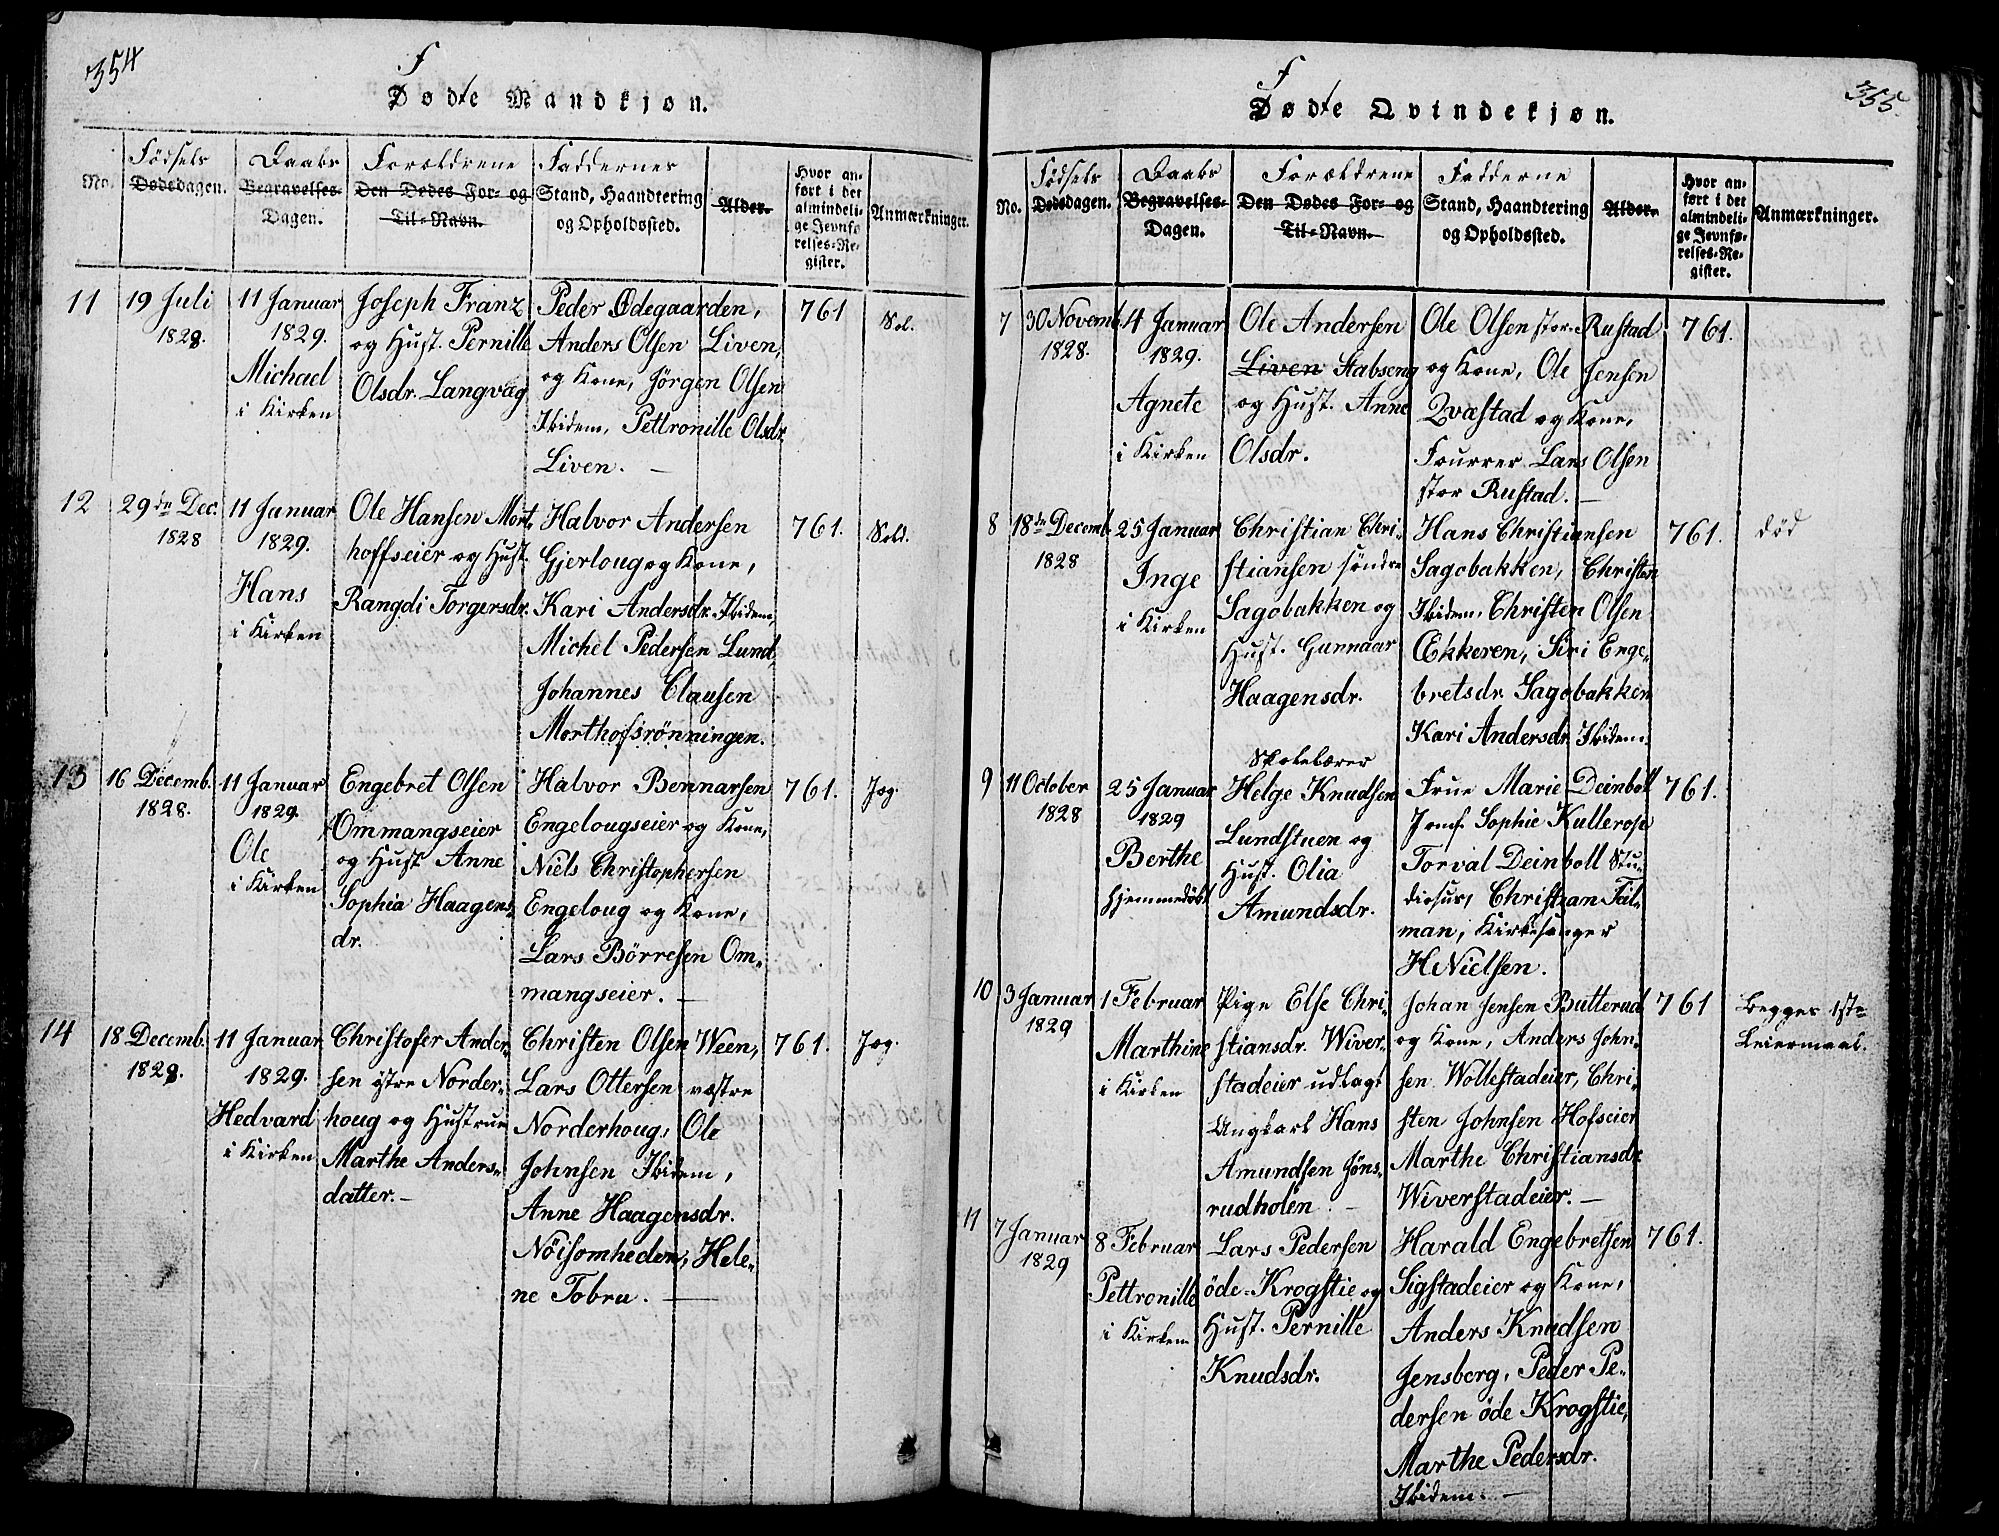 354
Fødte Mandkjøn.
No.
Fødsels
Dødsdagen.
Daabs
Begravelses-
Dagen.
Forældrene
Den Dødes For- og
Til-Navn.
Faddernes
Stand, Haandtering
og Opholdssted.
Alder.
Hvor an-
ført i det
almindeli-
ge Jevnfø-
relses-Re-
gister.
Anmærkninger.
11
19 Juli
1828.
11 Januar
1829.
Michael
i Kirken
Joseph Franz
og Hust. Pernille
Olsdr. Langvåg
Peder Ödegaarden,
Anders Olsen Liven,
og Kone, Jörgen Olsen
Ibidem, Pettronille Olsdr.
Liven. —
761
Sol.
12
29de Dec.
1828
11 Januar
1829.
Hans
i Kirken
Ole Hansen Mort-
hoffseier og Hust.
Rangdi Torgersdr.
Halvor Andersen
Gjerloug og Kone,
Kari Andersdr. Ibidem,
Michel Pedersen Lund,
Johannes Clausen
Morthofsrönningen.
761.
Sold.
13
16 Decemb.
1828.
11 Januar
1829.
Ole
i Kirken
Engebret Olsen
Ommangseier
og Hust. Anne
Sophia Haagens-
dr.
Halvor Bennarsen
Engelougseier og Kone,
Niels Christophersen
Engeloug og Kone,
Lars Börresen Om-
mangseier. —
761.
Jog.
14
18 Decemb.
1828.
11 Januar
1829.
Hedvard
i Kirken
Christofer Ander-
sen östre Norder-
houg og Hustrue
Marthe Anders-
datter. —
Christen Olsen Ween,
Lars Ottersen væstre
Norderhoug, Ole
Johnsen Ibidem,
Anne Haagensdr.
Nöisomheden, Hele-
ne Tobru. —
761.
Jog.
355.
Fødte Qvindekjøn.
No.
Fødsels
Dødsdagen.
Daabs
Begravelses-
Dagen.
Forældrene
Den Dødes For- og
Til-Navn.
Fadderne
Stand, Haandtering
og Opholdssted.
Alder.
Hvor an-
ført i det
almindeli-
ge Jevnfø-
relses-Re-
gister.
Anmærkninger.
7
30 Novemb.
1828.
4 Januar
1829.
Agnete
i Kirken
Ole Andersen
Liven Stabseng
og Hust. Anne
Olsdr.
Ole Olsen stor-Rustad
og Kone, Ole Jensen
Qvæstad og Kone,
Fourrer Lars Olsen
stor Rustad. —
761.
8
18de Decemb.
1828
25 Januar
Inge
i Kirken
Christian Chri-
stiansen söndre
Sagobakken og
Hust. Gunnaar
Haagensdr.
Hans Christiansen
Sagobakken, Christen
Ibidem, Christen Olsen
Œkkeren, Siri Enge-
bretsdr. Sagobakken
Kari Andersdr. Ibidem.
761.
död
9
11 October
1828
25 Januar
1829
Berthe
hjemmedöbt
Skolelærer
Helge Knudsen
Lundstuen og
Hust. Olia
Amundsdr.
Frue Marie Deinboll
Jomf. Sophie Kullerop
Torval Deinboll Stu-
diosus, Christian Tal-
man, Kirkesanger
H Nielsen.
761.
10
3 Januar
1829
1 Februar
Marthine
i Kirken
Pige Else Chri-
stiansdr. Wiver-
stadeier udlagt
Ungkarl Hans
Amundsen Jöns-
rudholen. —
Johan Jensen Butterud
og Kone, Anders John-
sen Wollestadeier, Chri-
sten Johnsen Hofseier
Marthe Christiansdr.
Wiverstadeier. —
761
Begges 1ste
Leiermaal.
11
7 Januar
1829
8 Februar
Pettronille
i Kirken
Lars Pedersen
öde-Krogstie og
Hust. Pernille
Knudsdr.
Harald Engebretsen
Sigstadeier og Kone,
Anders Knudsen
Jensberg, Peder Pe-
dersen öde Krogstie,
Marthe Pedersdr.
Ibidem. —
761.